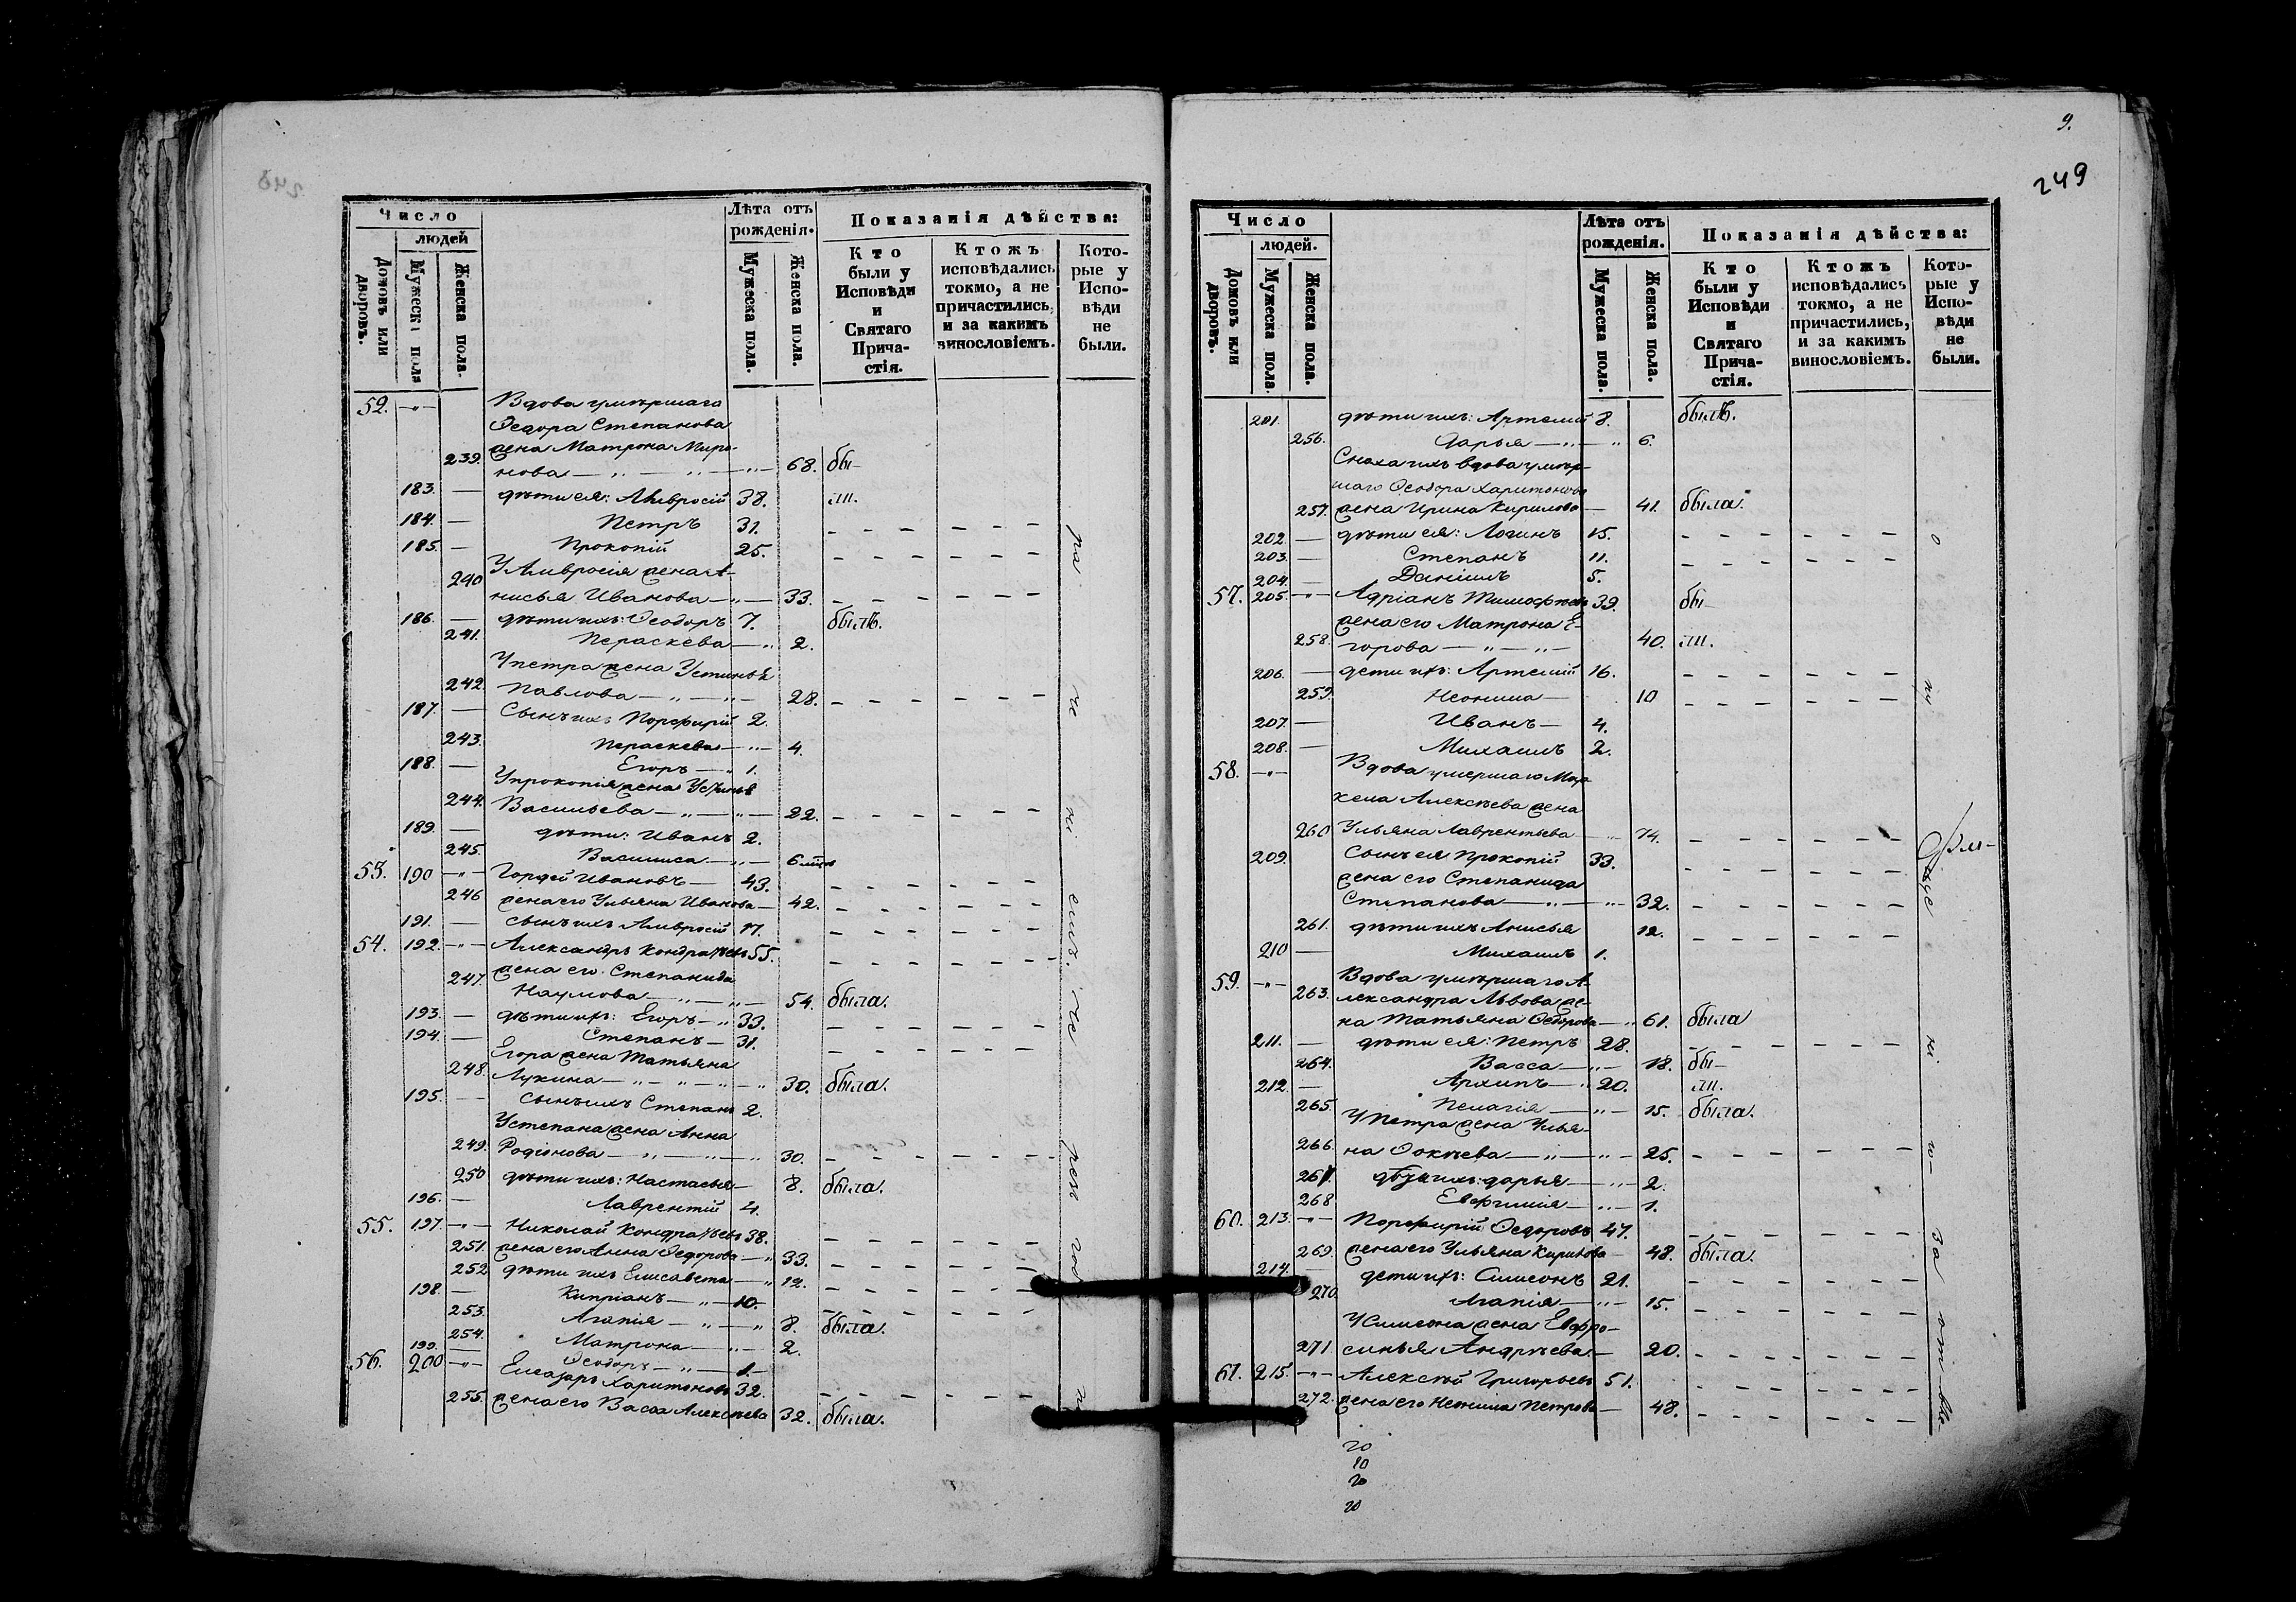 Число
людей
Домовъ или дворовъ.
Мужеска пола
Женска пола.
Лѣта отъ рожденія.
Мужеска пола.
Женска пола.
Показанія дѣйства:
Кто были у Исповѣди и Святаго Прича-стія.
Ктожъ исповѣдались токмо, а не причастились, и за какимъ винословіемъ.
Кото-рые у Испо-вѣди не были.
52. —„— Вдова умершаго
Ѳедора Степанова
жена Матрона Миро-
239. нова — „ — „ — „ — 68. бы-
183. — дѣти ея: Амвросій 38. ли.
184. — Петръ 31.
185. — Прокопій 25.
У Амвросія жена А-
240 нисья Иванова — „ — 33.
186. — дѣти ихъ: Ѳеодоръ 7. былъ.
241. Параскева — „ 2.
У Петра жена Устинья
242. Павлова — „ — „ — 28.
187. — Сынъ ихъ Порфирій 2.
243. Параскева — „ — 4.
188. — Егоръ — „ 1.
У Прокопія жена Устинья
244. Васильева — „ — „ — 22.
189. — дѣти: Иванъ 2.
245. Василиса — „ — 6 мѣс
53. 190 —„— Гордей Ивановъ — 43.
246 жена его Ульяна Иванова — 42.
191. — сынъ ихъ Амвросій 17.
54. 192. —„— Александръ Кондратьевъ 55.
жена его Степанида
247. Наумова — „ — „ — 54. была.
193. — дѣти ихъ: Егоръ — „ 33.
194. — Степанъ — 31.
Егора жена Татьяна
248. Лукина — „ — „ — „ — „ 30. была.
195. — сынъ ихъ Степанъ 2.
У Степана жена Анна
249. Родіонова — „ — „ — „ 30.
250 дѣти ихъ: Настасья — 8. была.
196. — Лаврентій 4.
55. 197. —„— Николай Кондратьевъ 38.
251. жена его Анна Ѳедорова — „ 33.
252 дѣти ихъ Елисавета — „ 12.
198. — Кипріанъ — „ — 10.
253. Агапія — „ — „ 8. была.
254. Матрона — „ — 2.
199. — Ѳеодоръ — „ — 1.
56. 200 —„— Елеазаръ Харитоновъ 32.
255. жена его Васса Алексѣева 32. была.
9.
249
Число
людей.
Домовъ или дворовъ.
Мужеска пола.
Женска пола.
Лѣта отъ рожденія.
Мужеска пола.
Женска пола.
Показанія дѣйства:
Кто были у Исповѣди и Святаго Прича-стія.
Ктожъ исповѣдались токмо, а не причастились, и за какимъ винословіемъ.
Кото-рые у Испо-вѣди не были.
201. дѣти ихъ: Артемій 8. былъ.
256. Дарья — „ — „ 6.
Сноха ихъ вдова умер-
шаго Ѳеодора Харитонова
257. жена Ирина Кирилова — 41. была.
202. — дѣти ея: Логинъ 15.
203. — Степанъ 11.
204. — Даніилъ 5.
57. 205. —„— Адріанъ Тимофѣевъ 39. бы-
жена его Матрона Е-
258. горова — „ — „ — 40. ли.
206. — дети ихъ: Артемій 16.
259. Неонила — 10
207. — Иванъ — 4.
208. — Михаилъ 2.
58. —„— Вдова умершаго Мар-
кела Алексѣева жена
260 Ульяна Лаврентьева — „ 74.
209. Сынъ ея Прокопій 33.
жена его Степанида
Степанова — „ — „ — 32.
261. дѣти ихъ Анисья 12.
210 — Михаилъ 1.
59. —„— Вдова умершаго А-
263. лександра Львова же-
на Татьяна Ѳедорова — „ 61. была
211. — дѣти ея: Петръ 28.
264. Васса — „ — 18. бы-
212. — Архипъ — „ 20. ли.
265. Пелагія — „ — 15. была.
У Петра жена Улья-
266. на Ѳокѣева — „ — „ — 25.
267. дѣти ихъ: Дарья — „ — 2.
268 Евфимія — „ — 1.
60. 213. —„— Порфирій Ѳедоровъ 47.
269. жена его Ульяна Кирилова — 48. была.
214. дети ихъ: Симеонъ 21.
270. Агапія — „ — 15.
У Симеона жена Евфро-
271. синья Андрѣева — 20.
61. 215. —„— Алексѣй Григорьевъ 51.
272. жена его Неонила Петрова — 48.
20
10
20
20